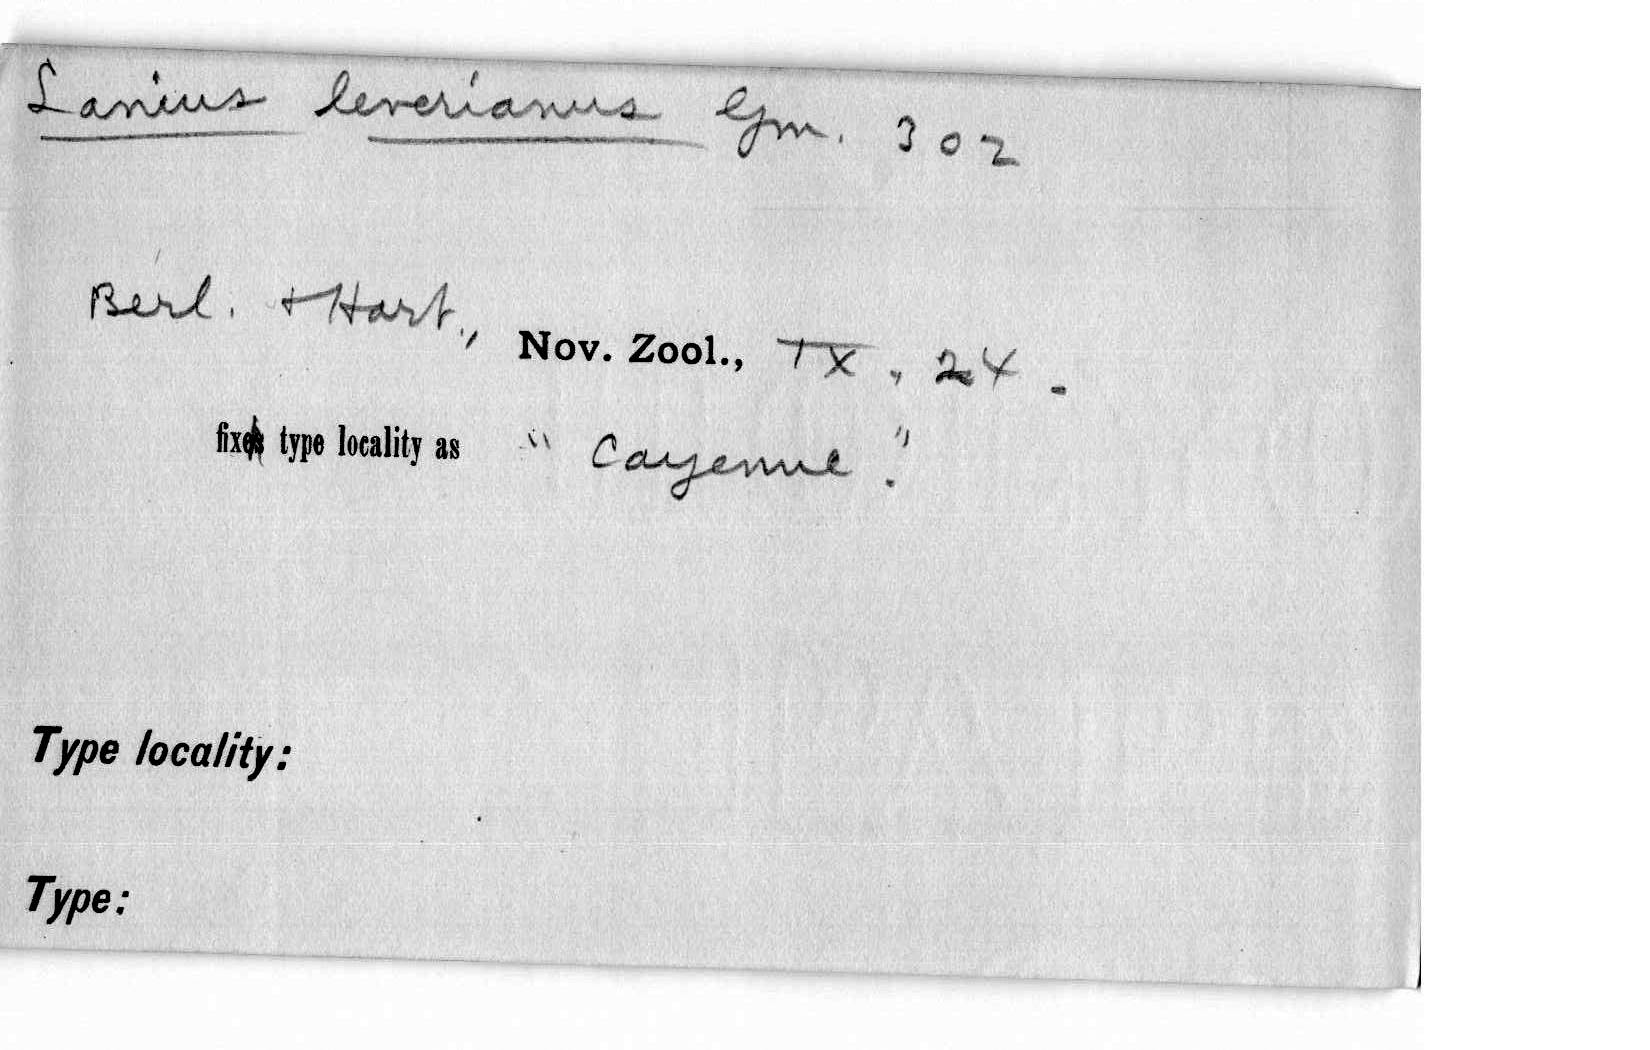 Lanius leverianus Gm. 302
Berl. + Hart., Nov. Zool., IX, 24.
fix type locality as "Cayenne."
Type locality:
Type: